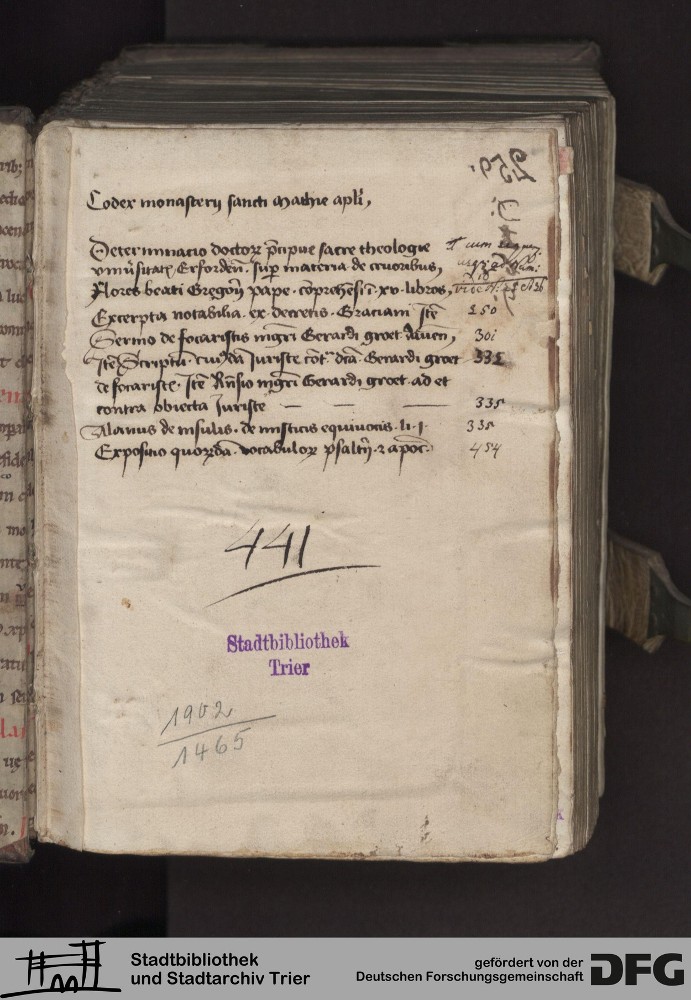 259.
Codex monasterij sancti Mathie apli,
Determinacio doctorꝝ p̄cipue sacre theologie
vniu͛sitatꝭ Erforden̄. sup̱ materia de cruoribus,
Flores beati Gregorij pape. cōprehēsi ī xv libros,
Excerpta notabilia ex decretis Graciani Itē 250
Sermo de focaristis mgr̄i Gerardi groet dauen̄, 301
Itē Scriptū cuiꝰdā Juriste cōt͛ dc̄ā Gerardi groet 331
de focaristꝭ. Itē Rn̄sio mgr̄i Gerardi groet ad et
contra obiecta Juriste — — — 335
Alanus de insulis. de misticis equiuocis. li. j. 335
Expositio quorūdā vocabulorꝝ psalt͛ij ⁊ apoc̄. 454
441
Stadtbibliothek
Trier
1902
1465
Stadtbibliothek
und Stadtarchiv Trier
gefördert von der
Deutschen Forschungsgemeinschaft
DFG